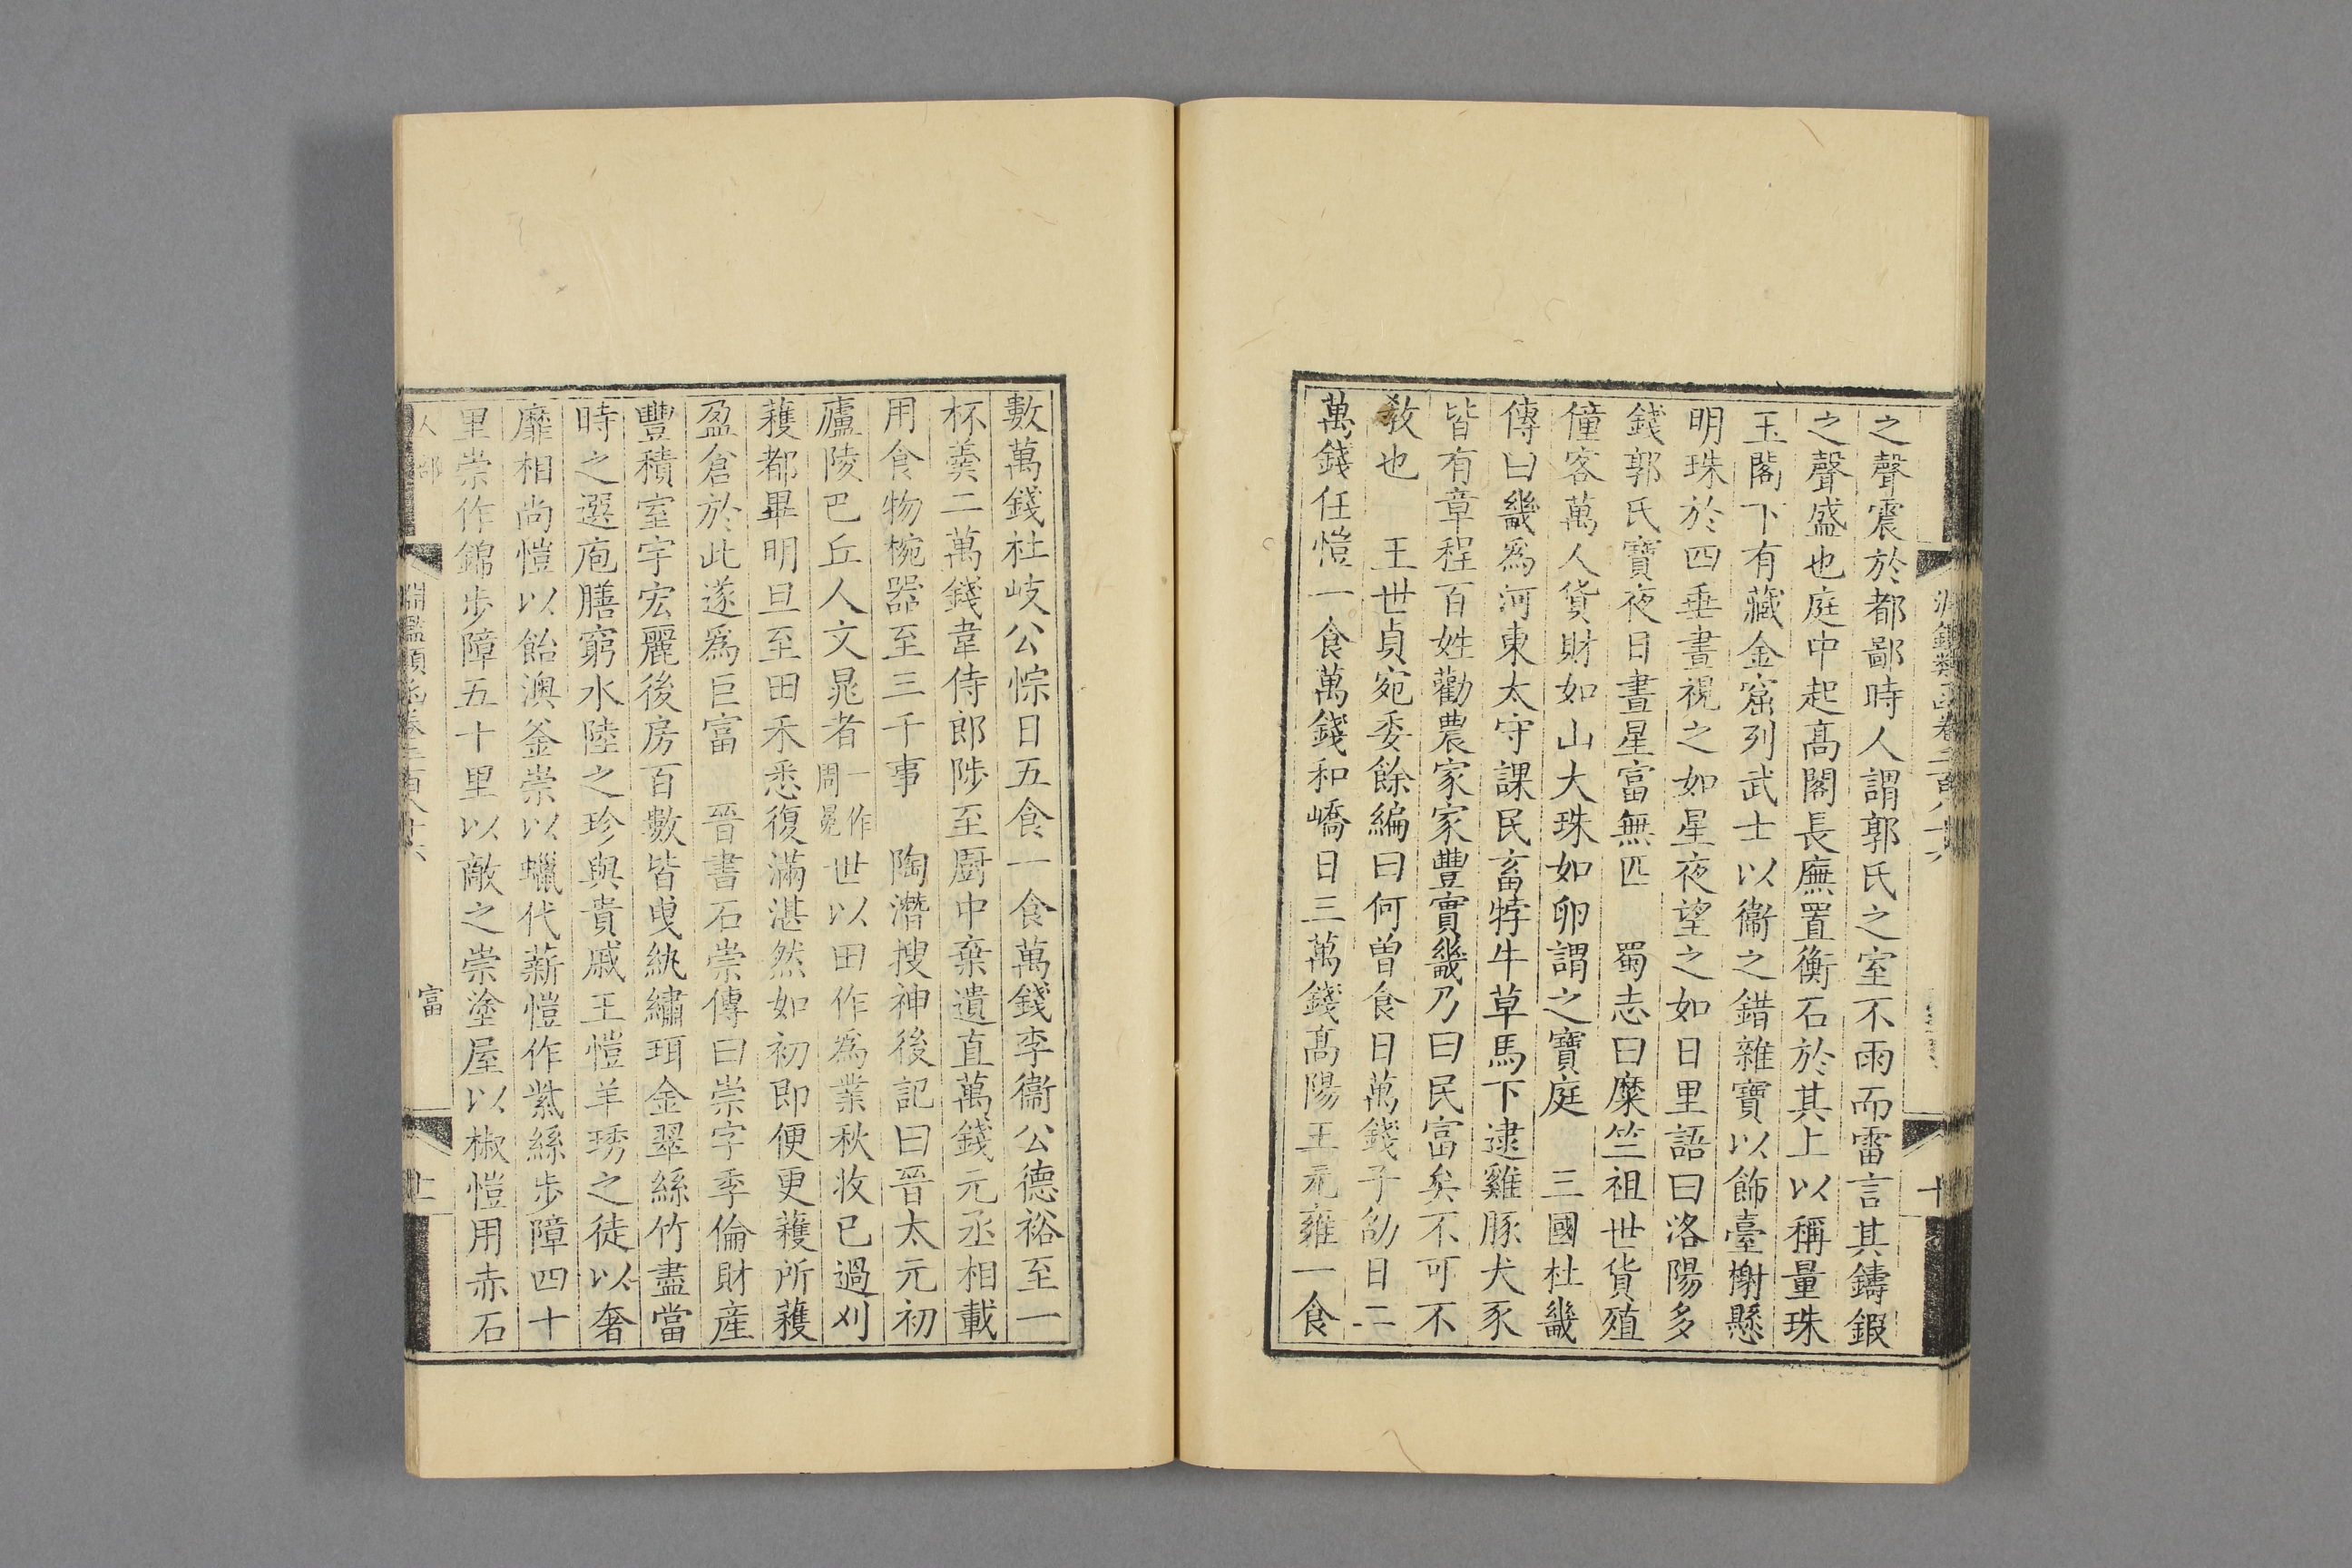 之聲震於都鄙時人謂郭氏之室不雨而雷言其鑄鍜
之聲盛也庭中起髙閣長廡置衡石於其上以稱量珠
玉閣下有藏金窟列武士以衞之錯雜寶以飾臺榭懸
明珠於四垂晝視之如星夜望之如日里語曰洛陽多
錢郭氏寶夜日晝星富無匹　蜀志曰糜竺祖世貨殖
僮客萬人貨財如山大珠如卵謂之寶庭　三國杜畿
傳曰畿爲河東太守課民畜牸牛草馬下逮雞豚犬豕
皆有章程百姓勸農家家豐實畿乃曰民富矣不可不
敎也　王世貞宛委餘編曰何曽食日萬錢子劭日二
萬錢任愷一食萬錢和嶠日三萬錢髙陽王元雍一食
數萬錢杜岐公悰日五食一食萬錢李衞公德裕至一
杯羮二萬錢韋侍郎陟至厨中棄遺直萬錢元丞相載
用食物椀器至三千事　陶潛搜神後記曰晉太元初
廬陵巴丘人文晁者一作周冕世以田作爲業秋收已過刈
穫都畢明旦至田禾悉復滿湛然如初即便更穫所穫
盈倉於此遂爲巨富　晉書石崇傳曰崇字季倫財産
豐積室宇宏麗後房百數皆曵紈繡珥金翠絲竹盡當
時之選庖膳窮水陸之珍與貴戚王愷羊琇之徒以奢
靡相尚愷以飴澳釜崇以蠟代薪愷作紫絲步障四十
里崇作錦步障五十里以敵之崇塗屋以椒愷用赤石
人部
淵鑑類函卷二百八十六
富